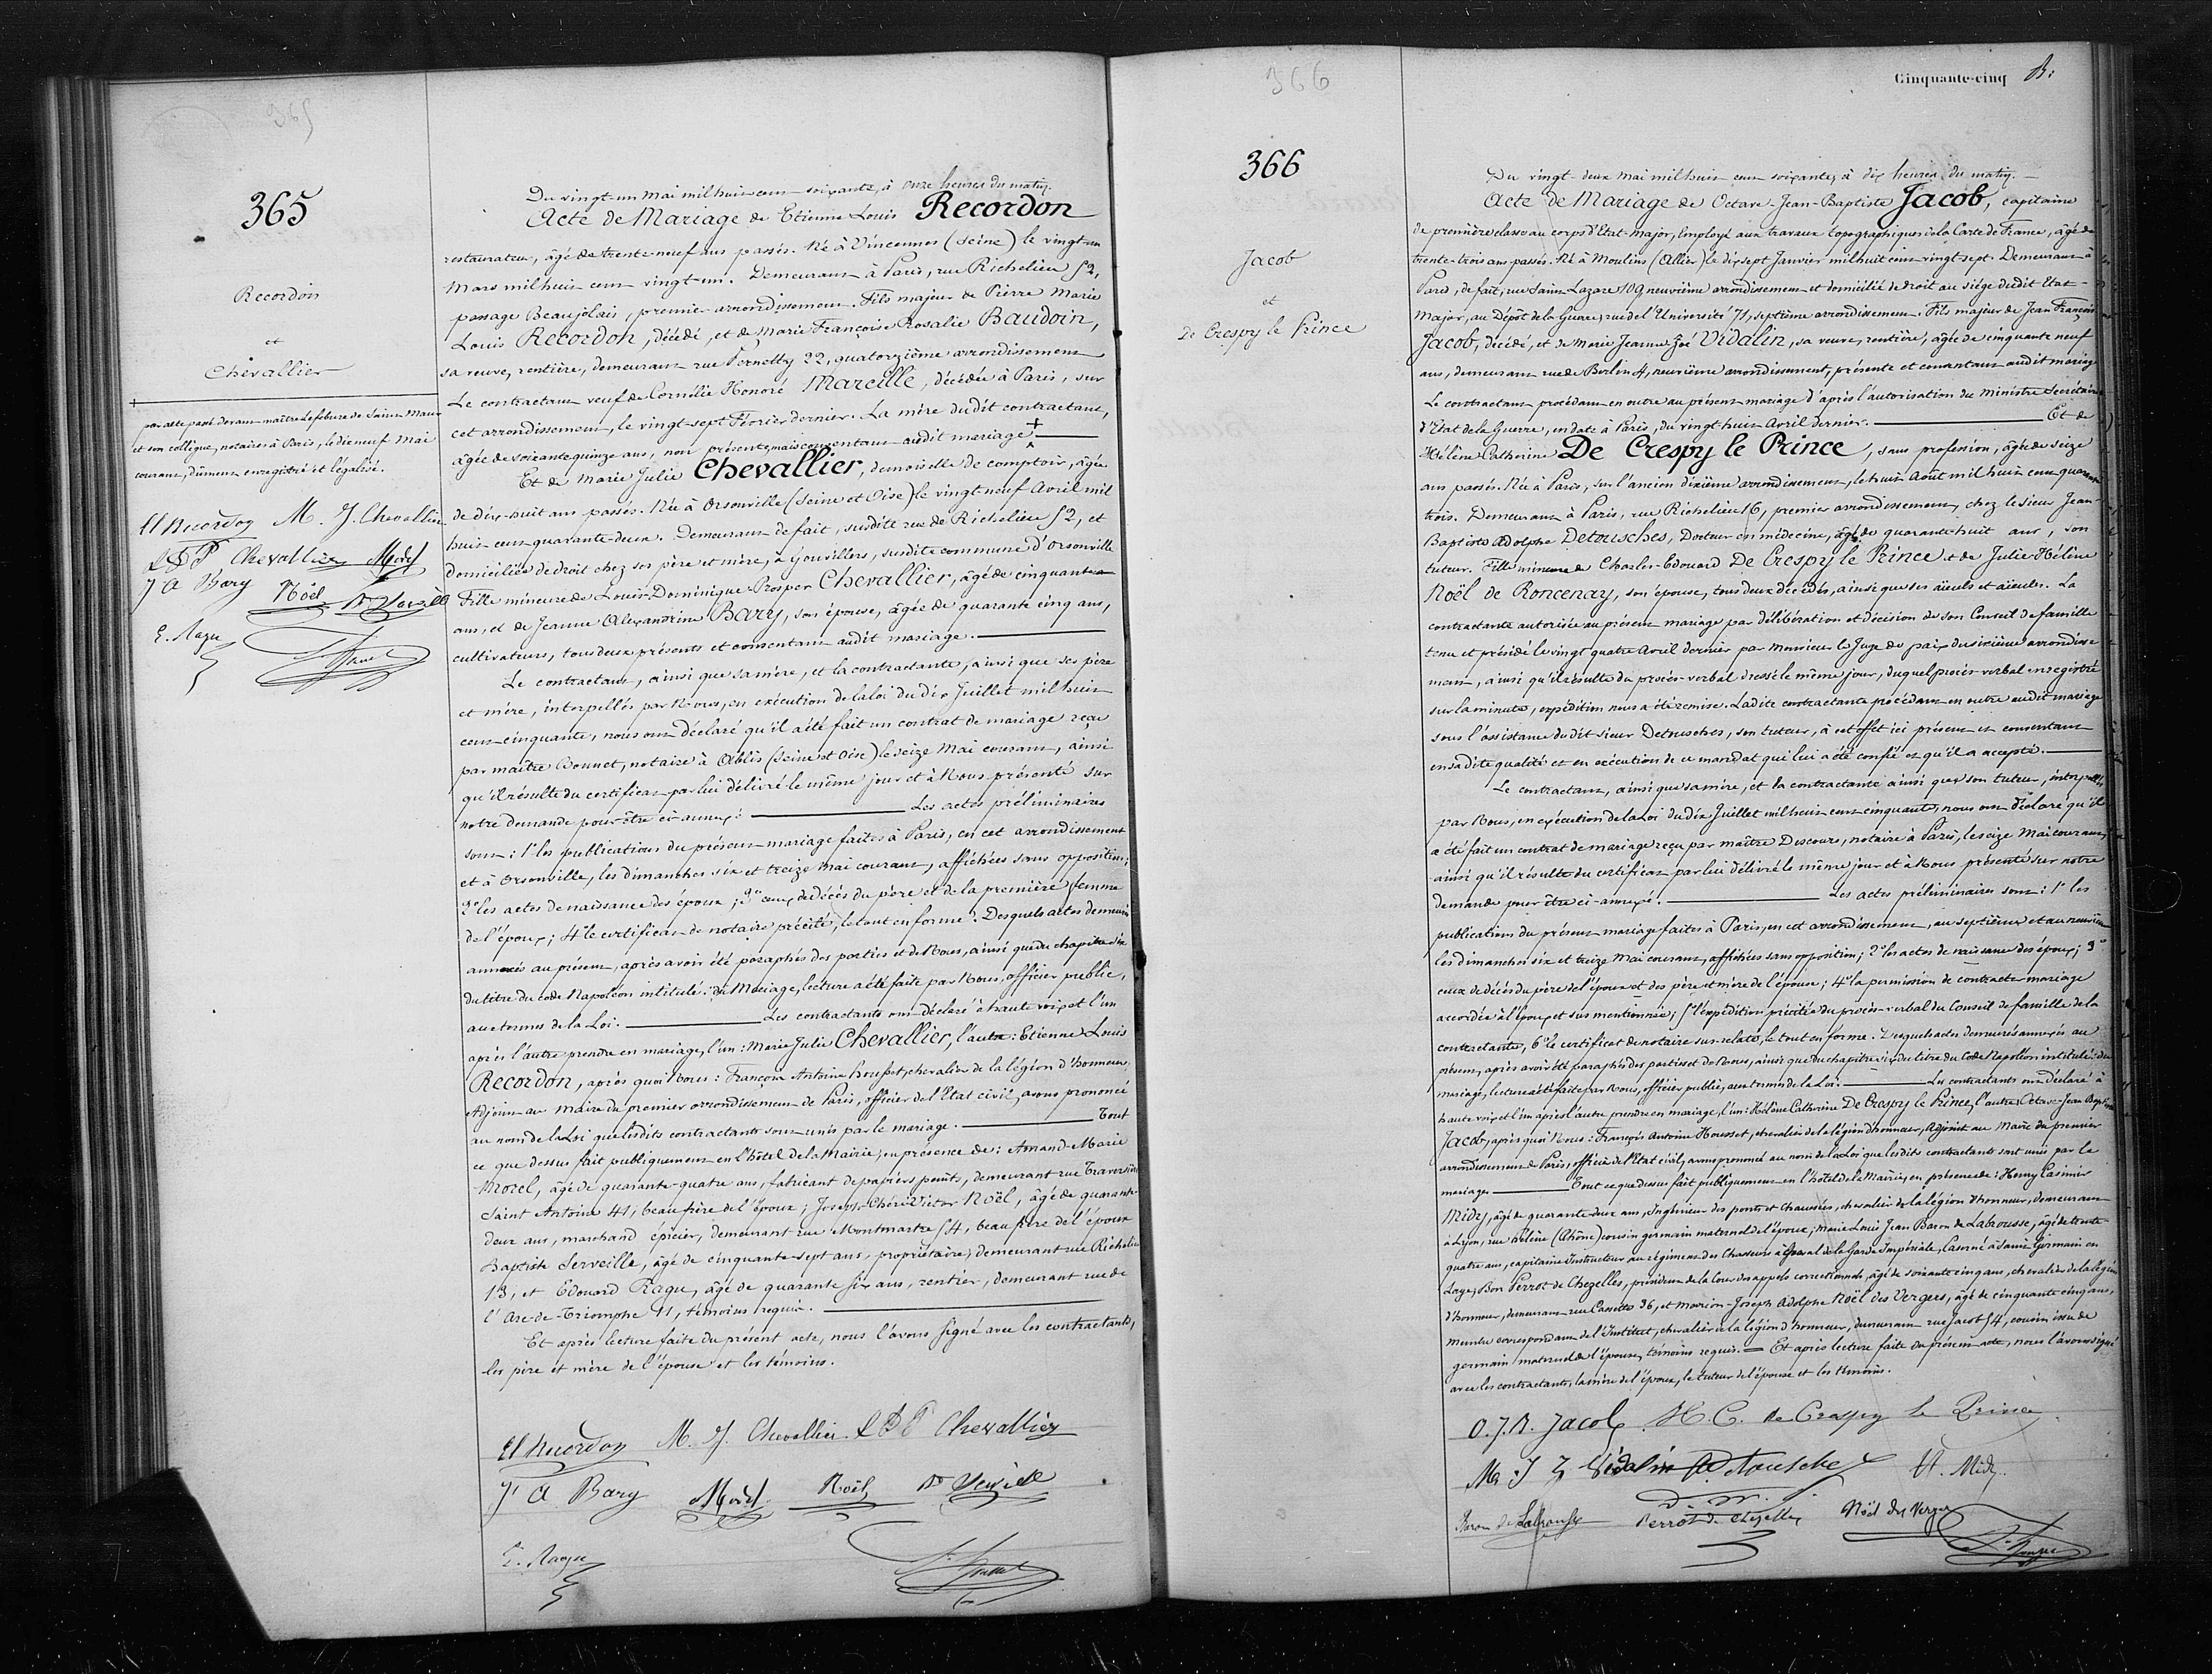 365
365
Recordon
et
Chevallier
par acte passé devant maître Lefebure de Saint Maur
et son collègue, notaires à Paris, le dix neuf Mai
courant, dûment enregistré et légalisé.
El Recordon M. J. Chevallier
L D P Chevallier Morel
J A Bary Noël Bte Serveille
E. Ragu
Du vingt-un Mai mil huit cent soixante, à onze heures du matin.
Acte de Mariage de Etienne Louis Recordon
restaurateur, âgé de trente-neuf ans passés. Né à Vincennes (Seine) le vingt-un
Mars mil huit cent vingt-un. Demeurant à Paris, rue Richelieu 52,
passage Beaujolais, premier arrondissement. Fils majeur de Pierre Marie
Louis Recordon, décédé, et de Marie Françoise Rosalie Baudoin,
sa veuve, rentière, demeurant rue Pernetty 22, quatorzième arrondissement
Le contractant veuf de Cornélie Honoré Mareille, décédée à Paris, sur
cet arrondissement, le vingt-sept Février dernier. La mère dudit contractant,
âgée de soixante quinze ans, non présente, mais consentant audit mariage +
Et de Marie Julie Chevallier, demoiselle de comptoir, âgée
de dix-huit ans passés. Née à Orsonville (Seine et Oise) le vingt neuf Avril mil
huit cent quarante-deux. Demeurant de fait, susdite rue de Richelieu 52, et
domiciliée de droit chez ses père et mère, à Gouvillers, susdite commune d'Orsonville
Fille mineure de Louis-Dominique-Prosper Chevallier, âgé de cinquante
ans, et de Jeanne Alexandrine Barry, son épouse, âgée de quarante cinq ans,
cultivateurs, tous deux présents et consentant audit mariage.
Le contractant, ainsi que sa mère, et la contractante, ainsi que ses père
et mère, interpellés par Nous, en exécution de la loi du dix Juillet mil huit
cent cinquante, nous ont déclaré qu'il a été fait un contrat de mariage reçu
par maître Bonnet, notaire à Ablis (Seine et Oise) le seize Mai courant, ainsi
qu'il résulte du certificat par lui délivré le même jour et à Nous présenté sur
notre demande pour être ci-annexé. Les actes préliminaires
sont : 1° les publications du présent mariage faites à Paris, en cet arrondissement
et à Orsonville, les dimanches six et treize Mai courant, affichées sans opposition;
2° les actes de naissance des époux; 3° ceux de décès du père et de la première femme
de l'époux; 4° le certificat de notaire précité, le tout en forme. Desquels actes demeurés
annexés au présent, après avoir été paraphés des parties et de Nous, ainsi que du chapitre six
du titre du code Napoléon intitulé: du Mariage, lecture a été faite par Nous, officier public,
aux termes de la Loi. Les contractants ont déclaré à haute voix et l'un
après l'autre prendre en mariage, l'un: Marie Julie Chevallier, l'autre: Etienne Louis
Recordon, après quoi Nous: François Antoine Housset, chevalier de la légion d'honneur,
Adjoint au Maire du premier arrondissement de Paris, officier de l'Etat civil, avons prononcé
au nom de la Loi que lesdits contractants sont unis par le mariage. Tout
ce que dessus fait publiquement en l'hôtel de la Mairie, en présence de: Amand-Marie
Morel, âgé de quarante-quatre ans, fabricant de papiers peints, demeurant rue Traversière
Saint Antoine 41, beau frère de l'époux; Joseph-Chéri-Victor Noël, âgé de quarante-
deux ans, marchand épicier, demeurant rue Montmartre 54, beau frère de l'époux
Baptiste Serveille, âgé de cinquante-sept ans, propriétaire, demeurant rue Richelieu
13, et Edouard Ragu, âgé de quarante six ans, rentier, demeurant rue de
l'Arc-de-Triomphe 11, témoins requis.
Et après lecture faite du présent acte, nous l'avons signé avec les contractants,
les père et mère de l'épouse et les témoins.
El Recordon M. J. Chevallier L D P Chevallier
J A Bary Morel Noël Bte Serveille
E. Ragu
366
366
Jacob
et
De Crespy le Prince
Cinquante-cinq
Du vingt-deux Mai mil huit cent soixante, à dix heures du matin.
Acte de Mariage de Octave-Jean-Baptiste Jacob, capitaine
de première classe au corps d'Etat-Major, employé aux travaux topographiques de la Carte de France, âgé de
trente-trois ans passés. Né à Moulins (Allier) le dix sept Janvier mil huit cent vingt sept. Demeurant à
Paris, de fait, rue Saint Lazare 109, neuvième arrondissement et domicilié de droit au siège dudit Etat-
Major, au Dépôt de la Guerre, rue de l'Université 71, septième arrondissement. Fils majeur de Jean François
Jacob, décédé, et de Marie Jeanne Zoé Vidalin, sa veuve, rentière, âgée de cinquante neuf
ans, demeurant rue de Berlin 4, neuvième arrondissement, présente et consentant audit mariage
Le contractant procédant en outre au présent mariage d'après l'autorisation du Ministre Secrétaire
d'Etat de la Guerre, en date à Paris, du vingt huit Avril dernier. Et de
Hélène Catherine De Crespy le Prince, sans profession, âgée de seize
ans passés. Née à Paris, sur l'ancien dixième arrondissement, le huit Août mil huit cent quarante
trois. Demeurant à Paris, rue Richelieu 16, premier arrondissement, chez le sieur Jean-
Baptiste Adolphe Detousches, Docteur en médecine, âgé de quarante-huit ans, son
tuteur. Fille mineure de Charles-Edouard De Crespy le Prince et de Julie Hélène
Noël de Roncenay, son épouse, tous deux décédés, ainsi que ses aïeuls et aïeules. La
contractante autorisée au présent mariage par délibération et décision de son Conseil de famille
tenu et présidé le vingt quatre Avril dernier par Monsieur le Juge de paix du sixième arrondisse
ment, ainsi qu'il résulte du procès-verbal dressé le même jour, duquel procès verbal enregistré
sur la minute, expédition nous a été remise. Ladite contractante procédant en outre audit mariage
sous l'assistance dudit sieur Detousches, son tuteur, à cet effet ici présent et consentant
en sadite qualité et en exécution de ce mandat qui lui a été confié et qu'il a accepté.
Le contractant, ainsi que sa mère, et la contractante ainsi que son tuteur, interpellés
par Nous, en exécution de la Loi du dix Juillet mil huit cent cinquante, nous ont déclaré qu'il
a été fait un contrat de mariage reçu par maître Descours, notaire à Paris, le seize Mai courant,
ainsi qu'il résulte du certificat par lui délivré le même jour et à Nous présenté sur notre
demande pour être ci-annexé. Les actes préliminaires sont: 1° les
publications du présent mariage faites à Paris, en cet arrondissement, au septième et au neuvième
les dimanches six et treize Mai courant, affichées sans opposition; 2° les actes de naissance des époux; 3°
ceux de décès du père de l'époux et des père et mère de l'épouse; 4° la permission de contracter mariage
accordée à l'époux et sus mentionnée; 5° l'expédition précitée du procès-verbal du Conseil de famille de la
contractante, 6° le certificat de notaire sus-relaté, le tout en forme. Desquels actes demeurés annexés au
présent, après avoir été paraphés des parties et de Nous, ainsi que du chapitre six du titre du Code Napoléon intitulé: du
mariage, lecture a été faite par Nous, officier public, aux termes de la Loi. Les contractants ont déclaré à
haute voix et l'un après l'autre prendre en mariage, l'un: Hélène Catherine De Crespy le Prince, l'autre: Octave-Jean Baptiste
Jacob, après quoi Nous: François Antoine Housset, chevalier de la légion d'honneur, Adjoint au Maire du premier
arrondissement de Paris, officier de l'Etat civil, avons prononcé au nom de la Loi que lesdits contractants sont unis par le
mariage. Tout ce que dessus fait publiquement en l'hôtel de la Mairie, en présence de: Henry Casimir
Midy, âgé de quarante deux ans, Ingénieur des ponts et Chaussées, chevalier de la légion d'honneur, demeurant
à Lyon, rue Hélène (Rhône) cousin germain maternel de l'époux; Marie Louis Jean Baron de Labrousse, âgé de trente
quatre ans, capitaine Instructeur au régiment des Chasseurs à Cheval de la Garde Impériale, Caserné à Saint Germain en
Laye; Bon Perrot de Chezelles, président de la Cour des appels correctionnels, âgé de soixante cinq ans, chevalier de la légion
d'honneur, demeurant rue Cassette 36, et Marion-Joseph Adolphe Noël des Vergers, âgé de cinquante cinq ans,
membre correspondant de l'Institut, chevalier de la légion d'honneur, demeurant rue Jacob 54, cousin issu de
germain maternel de l'épouse, témoins requis. Et après lecture faite du présent acte, nous l'avons signé
avec les contractants, la mère de l'époux, le tuteur de l'épouse et les témoins.
O. J. B. Jacob H. C. de Crespy le Prince
M. J Z Vidalin A Detousches H. Midy.
Baron de Labrousse Perrot de Chezelles Noël des Vergers